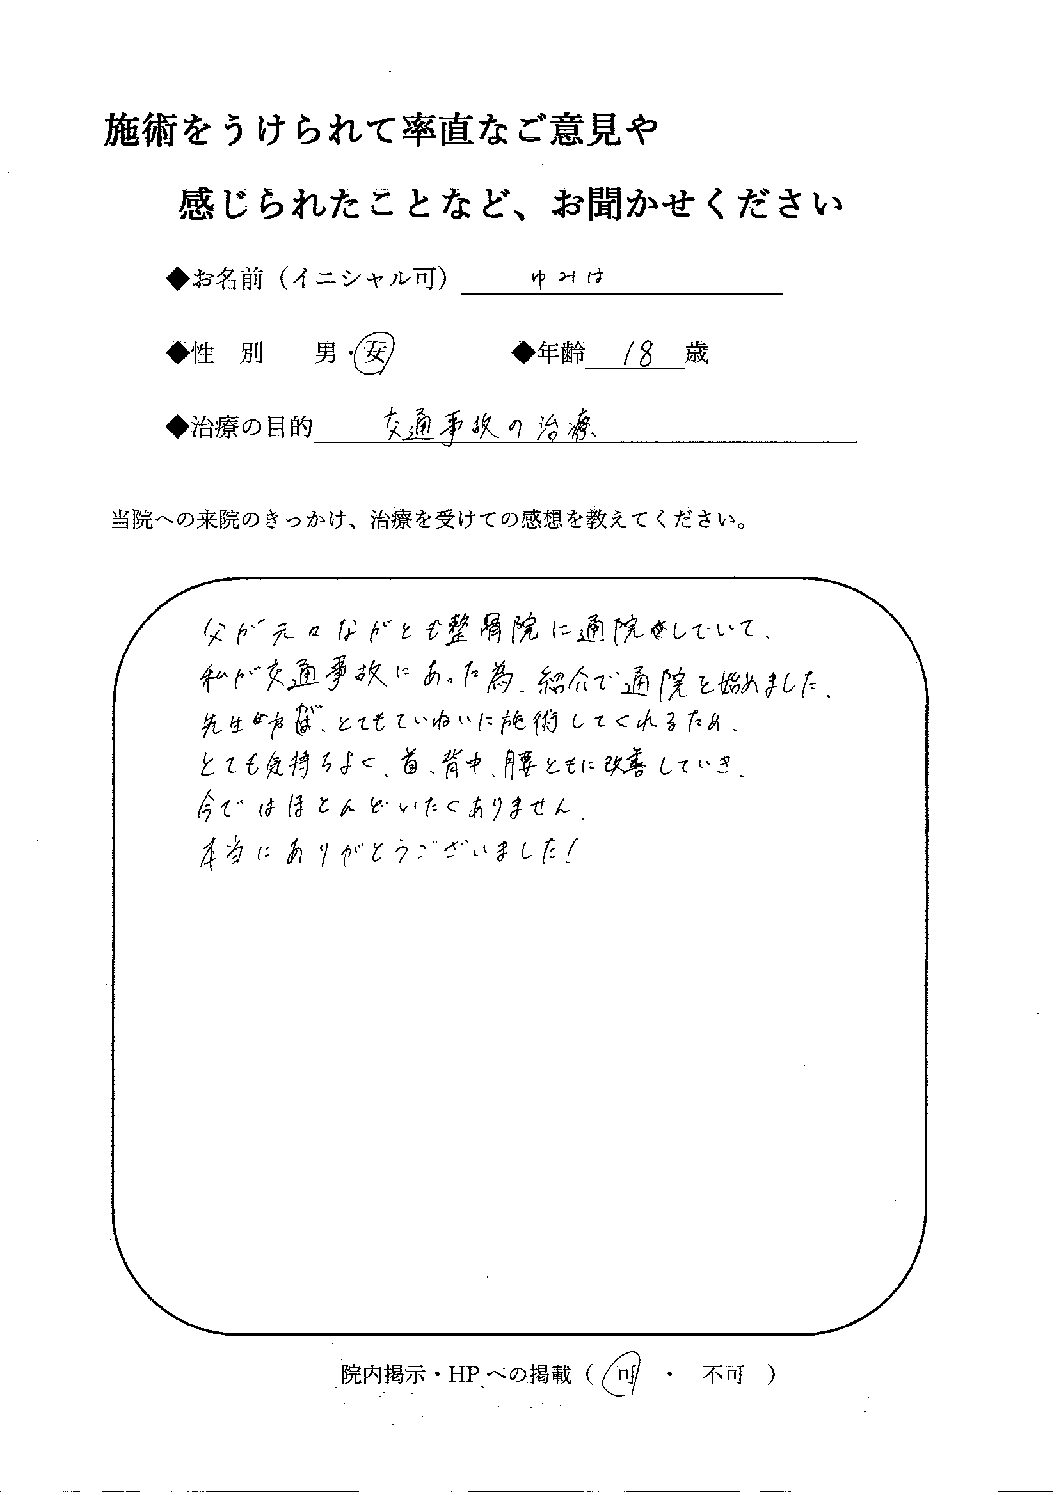 施術をうけられて率直なご意見や
感じられたことなど、お聞かせください
◆お名前（イニシャル可） ゆみは
◆性 別 男・女 ◆年齢 18 歳
◆治療の目的 交通事故の治療
当院への来院のきっかけ、治療を受けての感想を教えてください。
父が元々ながとも整骨院に通院をしていて、
私が交通事故にあった為、紹介で通院を始めました。
先生方が、とてもていねいに施術してくれるため、
とても気持ちよく、首、背中、腰ともに改善していき、
今ではほとんどいたくありません。
本当にありがとうございました！
院内掲示・HPへの掲載（ 可 ・ 不可 ）